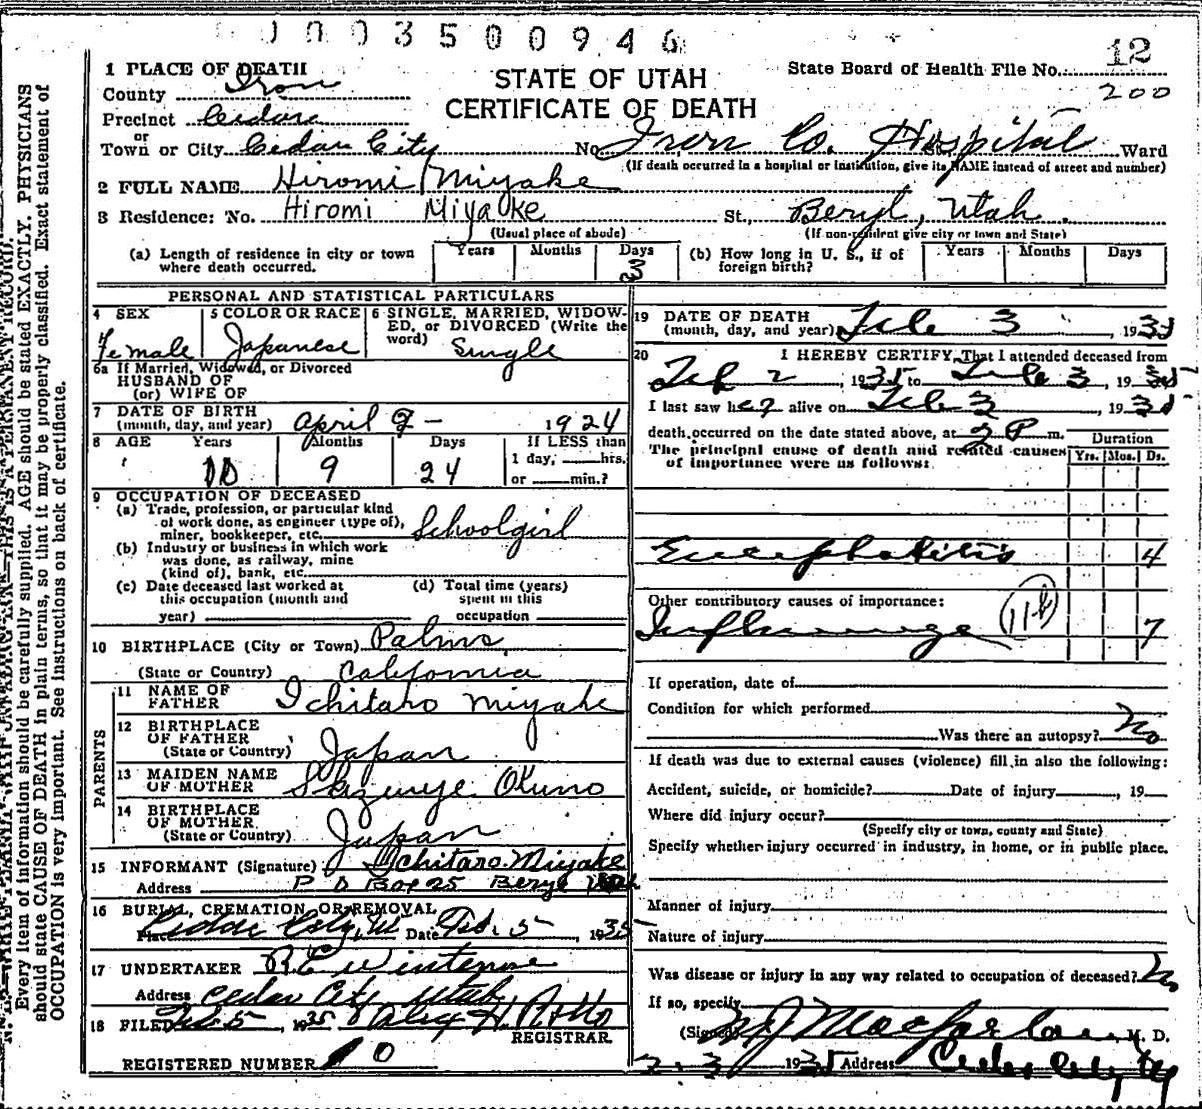 0003500946
12
1 PLACE OF DEATH
STATE OF UTAH
State Board of Health File No.
County Iron
CERTIFICATE OF DEATH
200
Precinct Cedar
or
Town or City Cedar City No. Iron Co. Hospital St., Ward
(If death occurred in a hospital or institution, give its NAME instead of street and number)
2 FULL NAME Hiromi Miyake
3 Residence: No. Hiromi Miyake St., Beryl, Utah.
(Usual place of abode) (If non-resident give city or town and State)
(a) Length of residence in city or town where death occurred. Years Months Days 3
(b) How long in U. S., if of foreign birth? Years Months Days
PERSONAL AND STATISTICAL PARTICULARS
4 SEX Female
5 COLOR OR RACE Japanese
6 SINGLE, MARRIED, WIDOWED, or DIVORCED (Write the word) Single
6a If Married, Widowed, or Divorced
HUSBAND OF
(or) WIFE OF
7 DATE OF BIRTH
(month, day, and year) April 9 - 1924
8 AGE Years Months Days If LESS than
10 9 24 1 day, hrs.
or min.?
9 OCCUPATION OF DECEASED
(a) Trade, profession, or particular kind
of work done, as engineer (type of),
miner, bookkeeper, etc. Schoolgirl
(b) Industry or business in which work
was done, as railway, mine
(kind of), bank, etc.
(c) Date deceased last worked at
this occupation (month and
year)
(d) Total time (years)
spent in this
occupation
10 BIRTHPLACE (City or Town) Palms,
(State or Country) California
PARENTS
11 NAME OF
FATHER Ichitaro Miyake
12 BIRTHPLACE
OF FATHER
(State or Country) Japan
13 MAIDEN NAME
OF MOTHER Okuno
14 BIRTHPLACE
OF MOTHER
(State or Country) Japan
15 INFORMANT (Signature) Ichitaro Miyake
Address P O Box 25 Beryl Utah
16 BURIAL, CREMATION OR REMOVAL
Place Cedar City, Ut Date Feb. 5, 1935
17 UNDERTAKER Winterose
Address Cedar City Utah
18 FILED Feb 5, 1935
REGISTRAR.
REGISTERED NUMBER 10
19 DATE OF DEATH
(month, day, and year) Feb 3, 1935
20 I HEREBY CERTIFY, That I attended deceased from
Feb 2, 1935 to Feb 3, 1935
I last saw her alive on Feb 3, 1935
death occurred on the date stated above, at 2 P m.
The principal cause of death and related causes
of importance were as follows:
Duration
Yrs. Mos. Ds.
Encephalitis 4
Other contributory causes of importance:
Influenza 7
If operation, date of
Condition for which performed
Was there an autopsy? No
If death was due to external causes (violence) fill in also the following:
Accident, suicide, or homicide? Date of injury , 19
Where did injury occur?
(Specify city or town, county and State)
Specify whether injury occurred in industry, in home, or in public place.
Manner of injury
Nature of injury
Was disease or injury in any way related to occupation of deceased? No
If so, specify
(Signed) M J Macfarlane, M. D.
2-3 1935 Address Cedar City, Ut
Every item of information should be carefully supplied. AGE should be stated EXACTLY. PHYSICIANS
should state CAUSE OF DEATH in plain terms, so that it may be properly classified. Exact statement of
OCCUPATION is very important. See instructions on back of certificate.